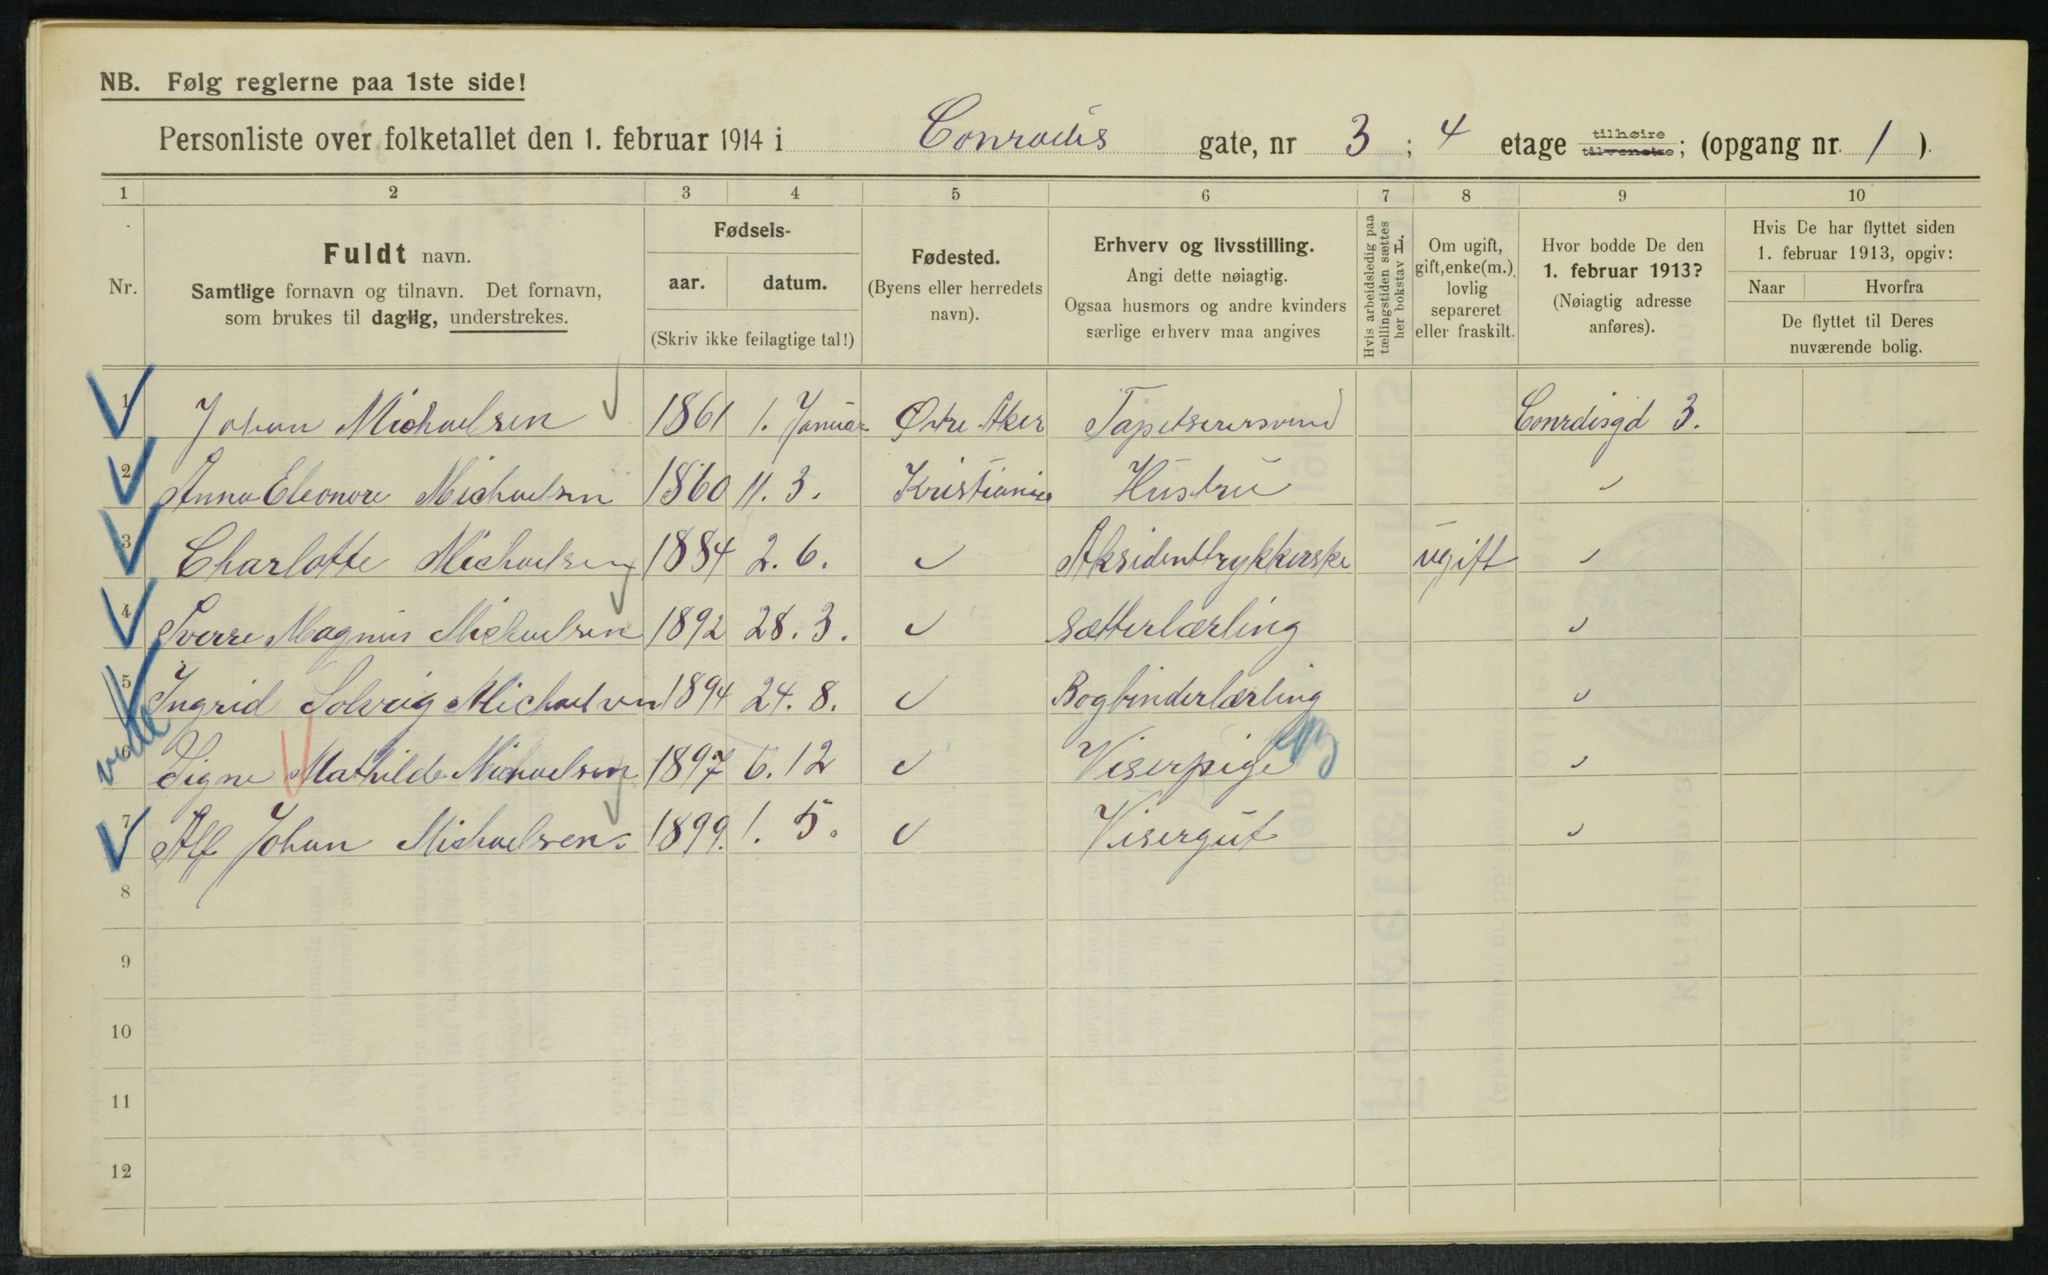 NB. Følg reglerne paa 1ste side!
Personliste over folketallet den 1. februar 1914 i Conradis gate, nr 3 ; 4 etage tilhøire tilvenstre ; (opgang nr. 1 ).
1 2 3 4 5 6 7 8 9 10
Nr.
Fuldt navn.
Samtlige fornavn og tilnavn. Det fornavn,
som brukes til daglig, understrekes.
Fødsels-
aar. datum.
(Skriv ikke feilagtige tal!)
Fødested.
(Byens eller herredets
navn).
Erhverv og livsstilling.
Angi dette nøiagtig.
Ogsaa husmors og andre kvinders
særlige erhverv maa angives
Hvis arbeidsledig paa
tællingstiden sættes
her bokstav L.
Om ugift,
gift, enke(m.),
lovlig
separeret
eller fraskilt.
Hvor bodde De den
1. februar 1913?
(Nøiagtig adresse
anføres).
Hvis De har flyttet siden
1. februar 1913, opgiv:
Naar Hvorfra
De flyttet til Deres
nuværende bolig.
1 Johan Michaelsen 1861 1. Januar Østre Aker Tapetserersvend Conrdisgd 3.
2 Anna Eleonore Michaelsen 1860 11. 3. Kristiania Hustru "
3 Charlotte Michaelsen 1884 2. 6. " Aksidenttrykkerske ugift "
4 Sverre Magnus Michaelsen 1892 28. 3. " Sætterlærling "
5 Ingrid Solveig Michaelsen 1894 24. 8. " Bogbinderlærling "
6 Signe Mathilde Michaelsen 1897 6. 12 " Viserpige "
7 Alf Johan Michaelsen. 1899. 1. 5. " Visergut "
8
9
10
11
12